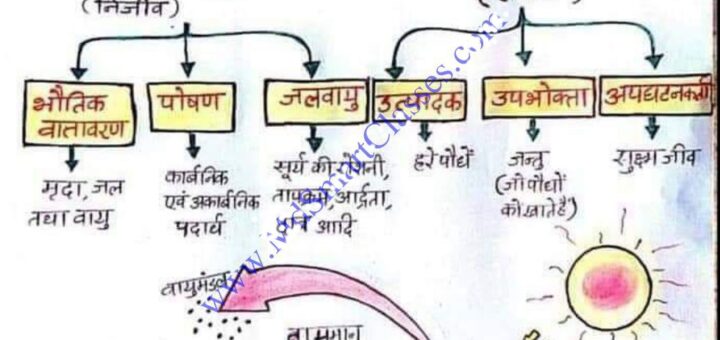 (निर्जीव)
भौतिक वातावरण
पोषण
जलवायु
उत्पादक
उपभोक्ता
अपघटनकर्ता
मृदा, जल
तथा वायु
कार्बनिक
एवं अकार्बनिक
पदार्थ
सूर्य की रोशनी,
तापक्रम, आर्द्रता,
आदि
हरे पौधें
जन्तु
(जो पौधों
को खाते हैं)
सुक्ष्म जीव
वायुमंडल
तापमान
www.MdSmartClasses.com